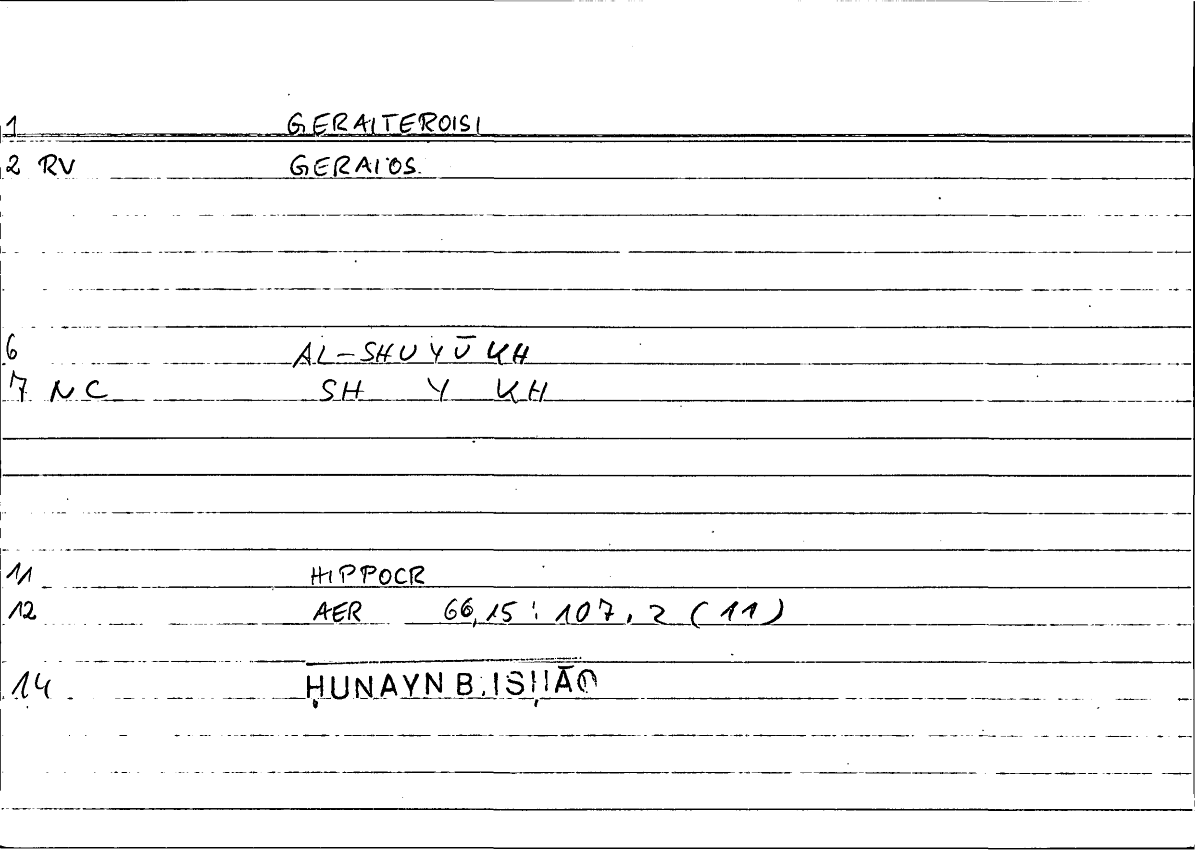 1 GERAITEROISI
2 RV GERAIOS
6 AL-SHUYŪKH
7 NC SH Y KH
11 HIPPOCR
12 AER 66,15 : 107,2 (11)
14 ḤUNAYN B. ISḤĀQ